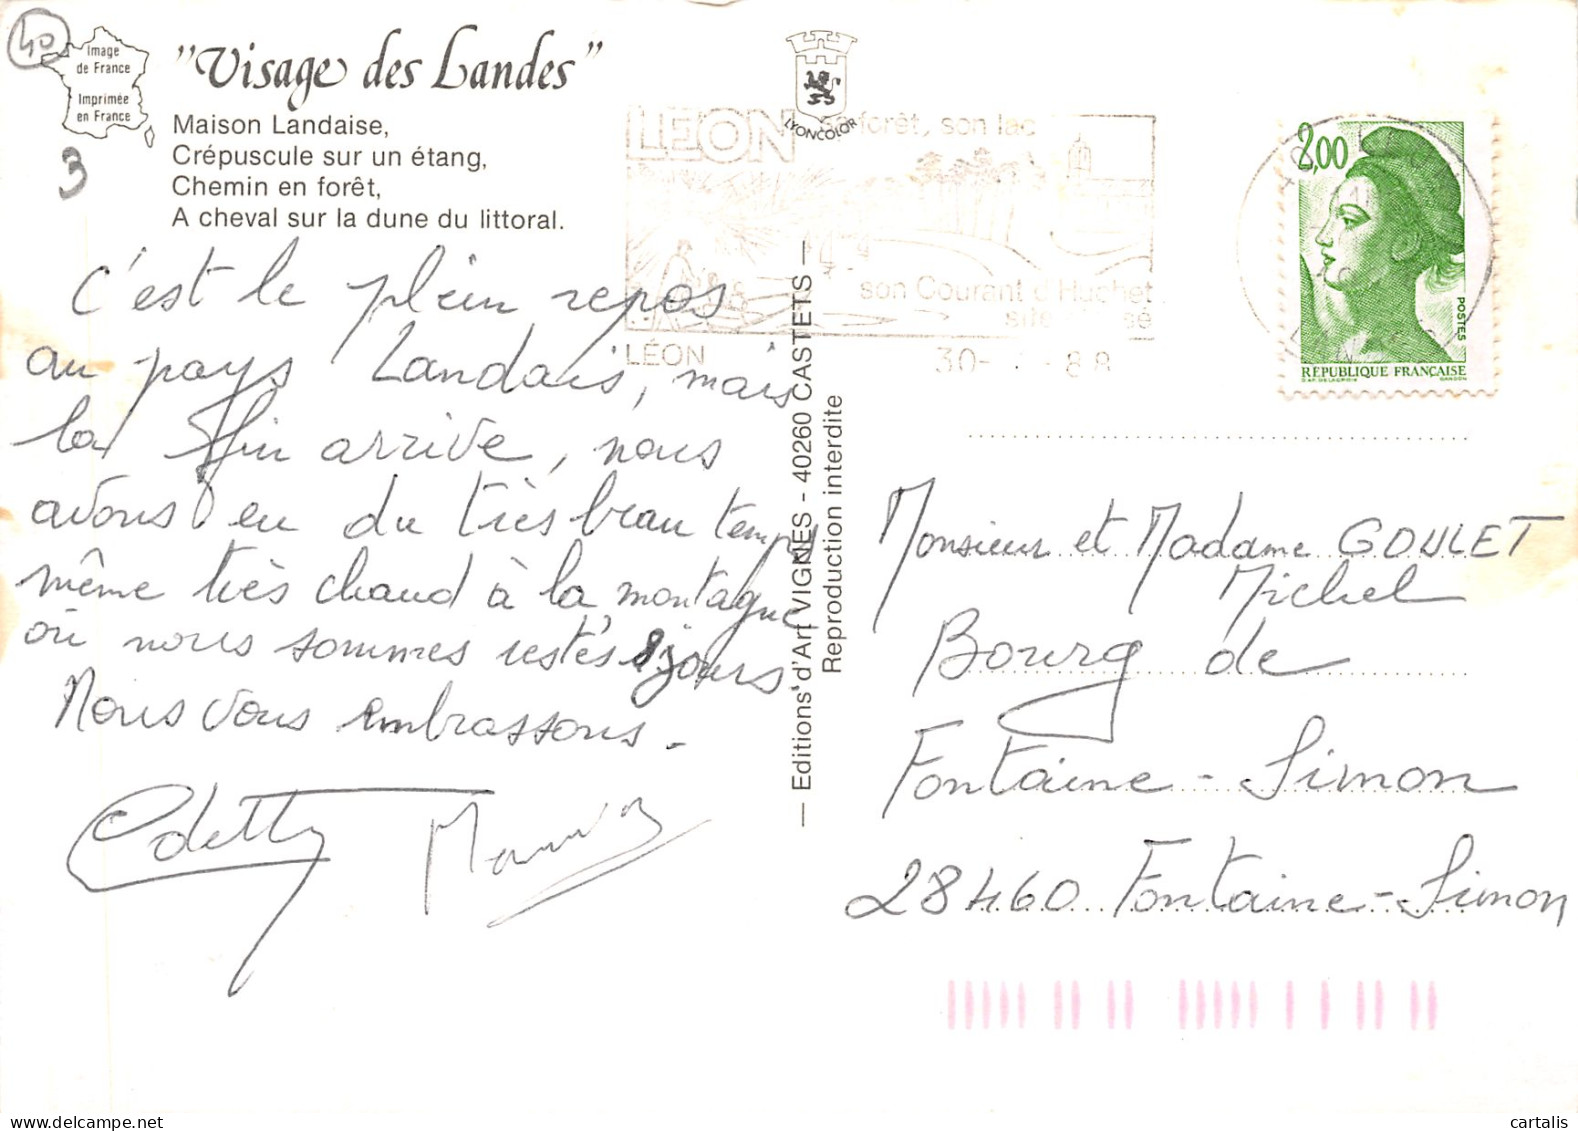 40
Image
de France
Imprimée
en France
3
"Visage des Landes"
Maison Landaise,
Crépuscule sur un étang,
Chemin en forêt,
A cheval sur la dune du littoral.
c'est le plein repos
au pays Landais, mais
la fin arrive, nous
avons eu du très beau temps
même très chaud à la montagne
où nous sommes restés 8 jours
Nous vous embrassons.
Odette
LYONCOLOR
LEON sa forêt, son lac
son Courant d'Huchet
site
LÉON
30- -88
— Editions d'Art VIGNES - 40260 CASTETS —
Reproduction interdite
2,00
POSTES
RÉPUBLIQUE FRANÇAISE
D'AP. DELACROIX GANDON
Monsieur et Madame GOULET
Michel
Bourg de
Fontaine-Simon
28460 Fontaine-Simon
cartalis